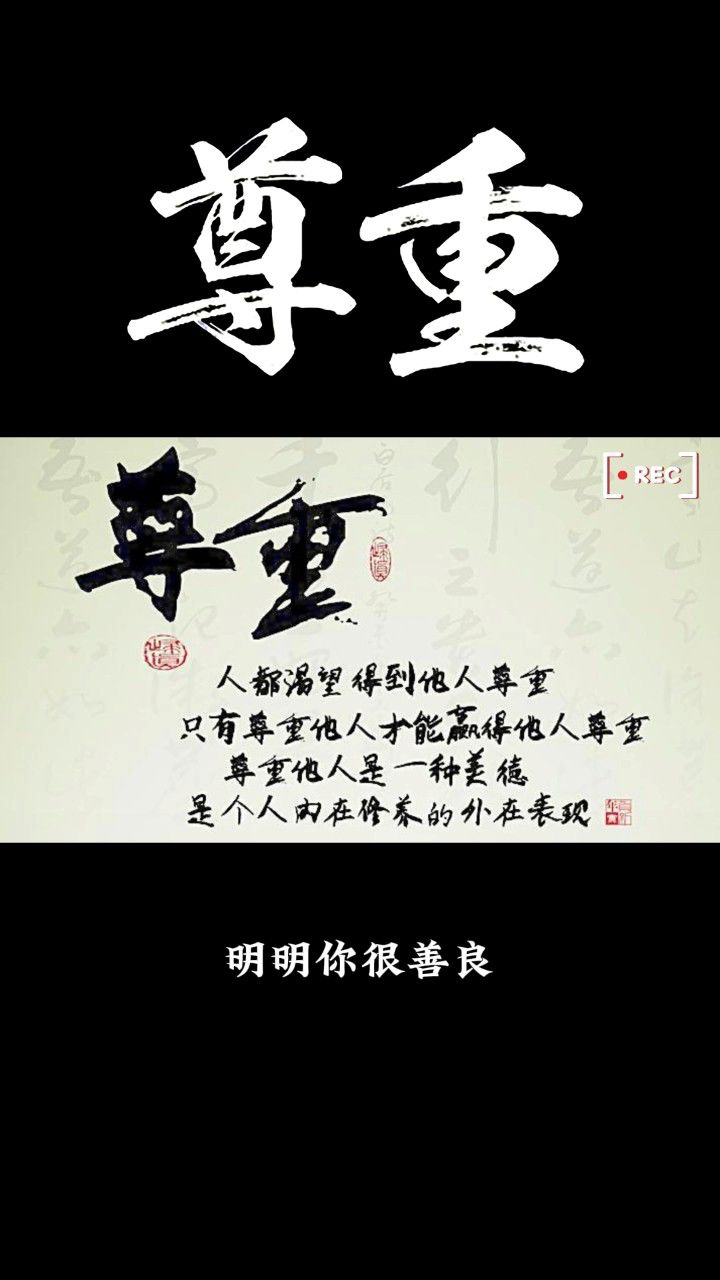 尊重
尊重
REC
人都渴望得到他人尊重
只有尊重他人才能赢得他人尊重
尊重他人是一种美德
是个人内在修养的外在表现
明明你很善良